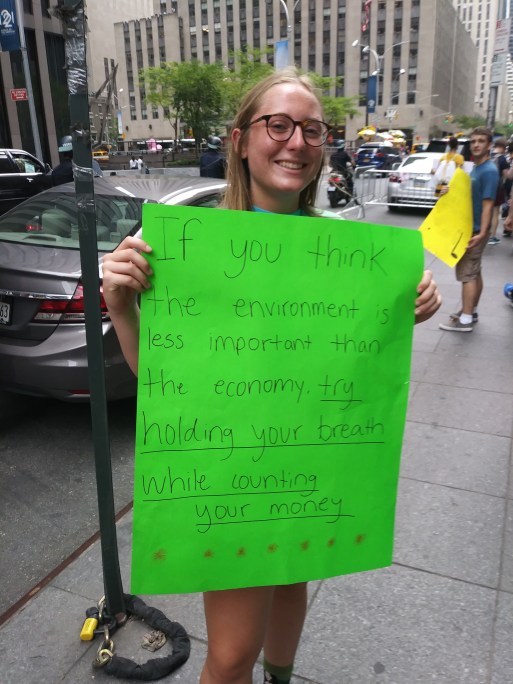 If you think
the environment is
less important than
the economy, try
holding your breath
while counting
your money